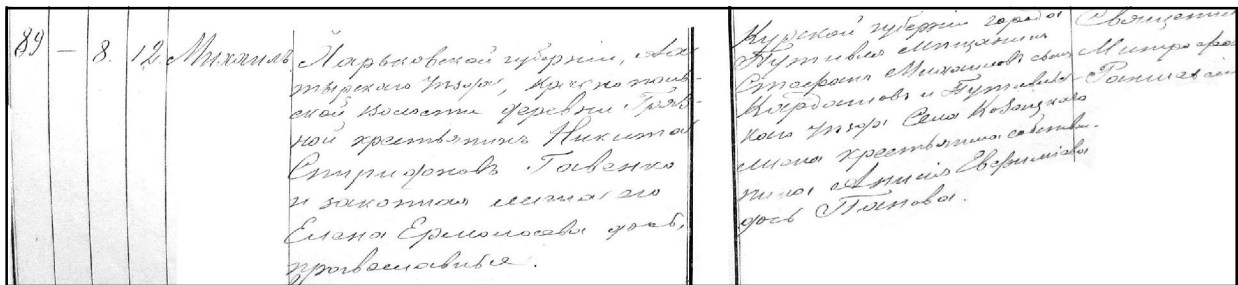 89 — 8. 12. Михаилъ
Харьковской губерніи, Ах-
тырскаго уѣзда, Краснополь-
ской волости деревни Гряз-
ной крестьянинъ Никита
Спиридоновъ Говенко
и законная жена его
Елена Ермолаева дочь,
православные.
Курской губерніи города
Путивля мѣщанинъ
Стефанъ Михаиловъ сынъ
Кардашовъ и Путивль-
скаго уѣзда Села Козацкаго
жена крестьянина собствен-
ника Анисія Евфиміева
дочь Панова.
Священникъ
Митрофа